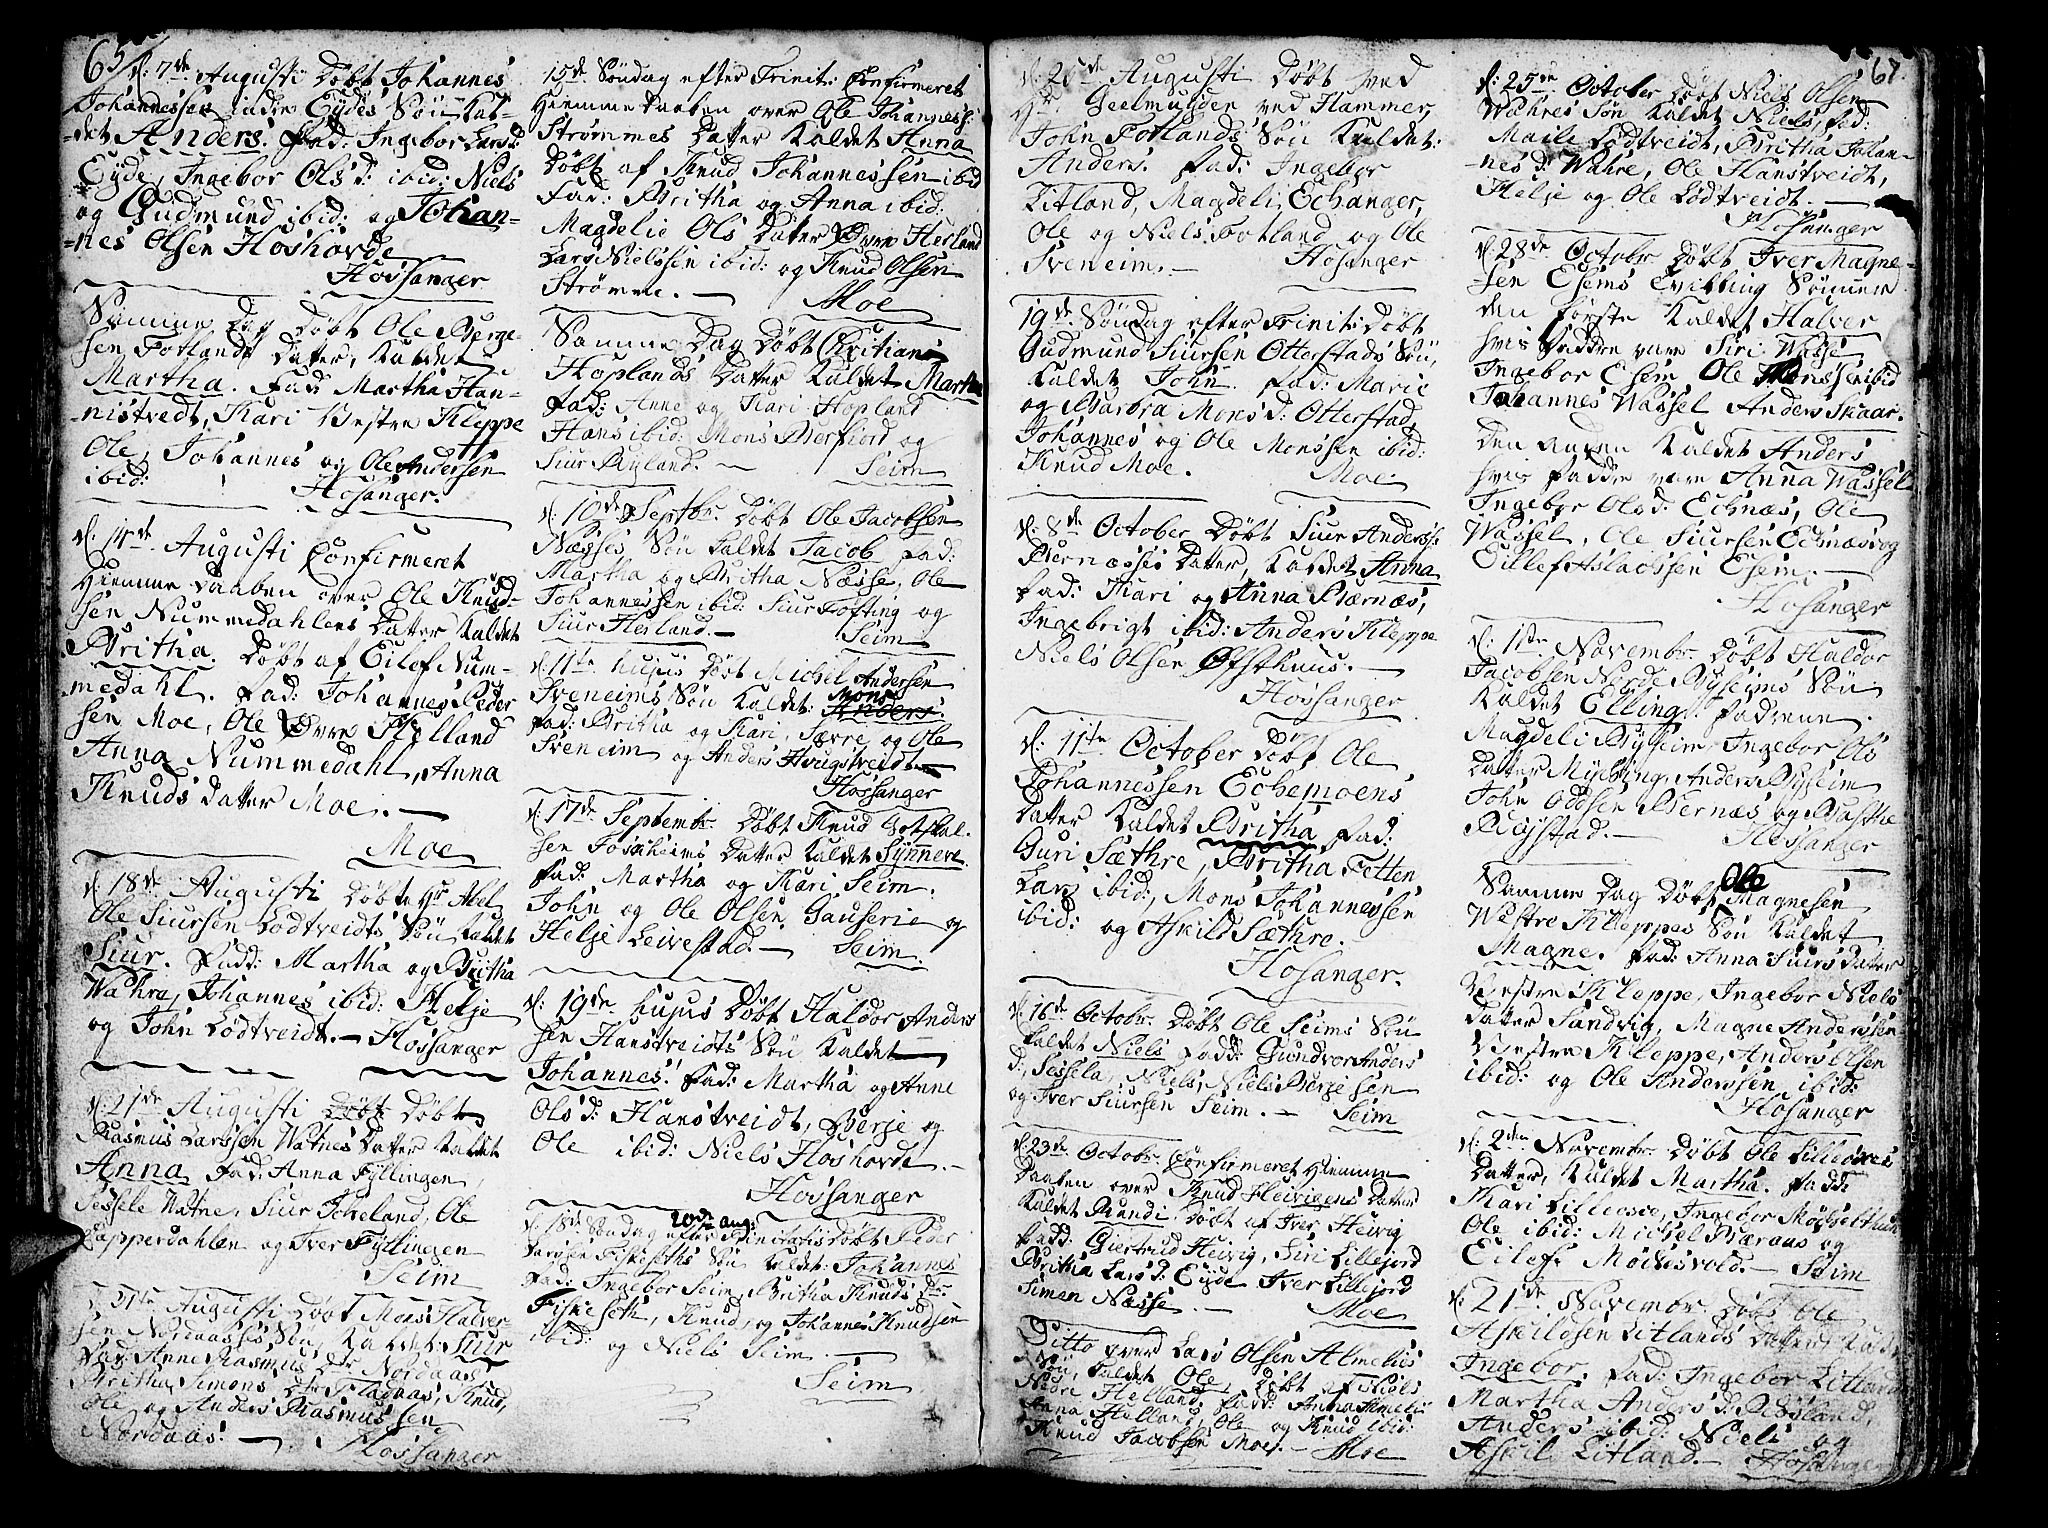 65
d: 7de Augusti Døbt Johannes
Johannessen indre Eydes Søn kal-
-det Anders. Fad: Ingebor Lars d:
Eyde, Ingebor Ols d: ibid: Niels
og Gudmund ibid: og Johan-
-nes Olsen Hoshovde
Hossanger
Samme Dag Døbt Ole Børge-
sen Fotlands Datter, kaldet
Martha. Fad: Martha Han-
nistvedt, Kari Vestre Kleppe
Ole, Johannes og Ole Andersen
ibid: Hosanger.
d: 14de Augusti Confirmeret
Hiemme daaben over Ole Knud-
sen Nummedahlens Datter kaldet
Britha. Døbt af Eilof Num-
medahl. Fad: Johannes Peder
sen Moe, Ole Øvre Helland
Anna Nummedahl, Anna
Knuds datter Moe.
Moe
d: 18de Augusti Døbte Hr Abel
Ole Siursen Lødtveidts Søn kaldet
Siur. Fadd: Martha og Britha
Wahre, Johannes ibid: Helje
og John Lødtveidt. — Hossanger
d: 21de Augusti Døbt Døbt
Rasmus Larssen Watnes Datter kaldet
Anna Fad: Anna Fyllingen,
Sessele Watne, Siur Ficheland, Ole
Tapperdahlen og Iver Fyllingen
Seim
Augusti Døbt Mons Halver-
sen Nordaases Søn, kaldet: Siur
Fad: Anne Rasmus dr Nordaas
Britha Simons dr Fladaas, Knud,
Ole og Anders Rasmussen
Nordaas. — Hossanger
15de Søndag efter Trinit: Confirmeret
Hiemme daaben over Ole Johanness:
Strømmes Datter kaldet Anna
Døbt af Knud Johannessen ibid
Fad: Britha og Anna ibid:
Magdelie Ols Datter Øvre Herland
Lars Nielssen ibid: og Knud Olsen
Strømme. — Moe
Samme Dag Døbt Christians
Hoplands Datter kaldet Martha
Fad: Anne og Kari Hopland
Hans ibid: Mons Berfiord og
Siur Ryland. — Seim
d: 10de Septbr. Døbt Ole Jacobsen
Næsses Søn kaldet Jacob Fad:
Martha og Britha Næsse, Ole
Johannessen ibid: Siur Tofting og
Siur Herland. — Seim
d: 11te hujus Døbt Michel Andersen
Sveneims Søn kaldet Mons
Anders.
Fad: Britha og Kari, Sævre og Ole
Sveneim og Anders Hougstveidt —
Hossanger
d: 17de Septembr. Døbt Knud Gotskal-
sen Fosseheims Datter kaldet Synneve.
Fad: Martha og Kari Seim.
John og Ole Olsen Gauserie og
Helje Leivestad. — Seim.
d: 19de hujus Døbt Haldor Anders
sen Hanstveidts Søn kaldet
Johannes. Fad: Martha og Anne
Ols d: Hanstveidt, Berje og
Ole ibid: Niels Hoshovde. —
Hossanger
d: 13de Søndag efter Trinitatis Døbt Peder
20de aug:
Larssen Fiskeseths Søn kaldet: Johannes
Fad: Ingebor Seim, Britha Knuds dr
Fiskeseth, Knud, og Johannes Knudsen
ibid: og Niels Seim. —
Seim
d: 26de Augusti Døbt ved
Hr Geelmuyden ved Hammer,
John Fotlands Søn kaldet:
Anders. Fad: Ingebor
Litland, Magdeli Echanger,
Ole og Niels Fotland og Ole
Sveneim. — Hosanger
19de Søndag efter Trinit: Døbt
Gudmund Siursen Otterstads Søn,
kaldet John. Fad: Marie
og Barbra Mons d: Otterstad,
Johannes og Ole Monssen ibid:
Knud Moe. Moe
d: 8de October Døbt Siur Anderss:
Bernæsses Datter, kaldet Anna
Fad: Kari og Anna Bærnæs,
Ingebrigt ibid: Anders Kleppe
Niels Olsen Østhuus. —
Hossanger
d: 11te October Døbt Ole
Johannessen Echemoens
Datter kaldet Britha Fad:
Guri Sæthre, Britha Tetten
Lars ibid:, Mons Johannessen
ibid: og Askild Sæthre. —
Hosanger.
d: 16de Octobr. Døbt Ole Seims Søn
kaldet Niels Fadd: Gundvor Anders
d:, Sessela, Niels, Niels Berjesen
og Iver Siursen Seim. — Seim
d: 23de Octobr. Confirmeret Hiemme
Daaben over Knud Heivigens Datter
kaldet Randi. Døbt af Iver Heivig
Fadd: Giertrud Heivig, Siri Lillejord
Britha Lars d: Eyde Iver Lillejord
Simen Næsse. — Moe
Ditto over Lars Olsen Almelies
Søn, kaldet Ole, Døbt af Niels
Nedre Helland. Fadd: Anna Almelie
Anna Helland, Ole og Knud ibid:
Knud Jacobsen Moe. — Moe
67
d: 25de October Døbt Niels Olsen
Wahres Søn kaldet Niels, Fad:
Marie Lødtveidt, Britha Johan-
-nes d: Wahre, Ole Hanstveidt,
Helje og Ole Lødtveidt. —
Hosanger
d: 28de Octobr Døbt Iver Magne-
-sen Esems Tvilling Sønner
den første kaldet Halver
hvis Faddre vare Siri Wassel,
Ingebor Esem Ole Monssen ibid
Johannes Wassel Anders Skaar.
Den anden kaldet Anders
hvis Faddre vare Anna Wassel
Ingebor Ols d: Echnæs, Ole
Wassel, Ole Siursen Echnæs og
Eillef Aslachssen Esem. —
Hosanger
d: 1ste Novembr. Døbt Haldor
Jacobsen Nordre Byseims Søn
kaldet Elling. Fadrene
Magdeli Byseim Ingebor Ols
Datter Myhsing, Anders Byseim
John Odssen Bernæs og Barthe
Røystad. — Hossanger
Samme Dag Døbt Ole Magnesen
Westre Kleppes Søn kaldet
Magne. Fad: Anna Siurs Datter
Vestre Kleppe, Ingebor Niels
Datter Sandvig, Magne Anderssen
Vestre Kleppe, Anders Olsen
ibid: og Ole Anderssen ibid:
Hosanger
d: 2den Novembr. Døbt Ole Lilleosses
Datter, kaldet Martha. Fadd:
Kari Lilleosse, Ingebor
Ole ibid: Michel Bæraas og
Eilef Mochesvold. — Seim
d: 21de Novembr. Døbt Ole
Askildsen Litlands Datter, kaldt
Ingebor. Fad: Ingebor Litland
Martha Anders d: Røsland,
Anders ibid: Niels og
Askil Litland. — Hosanger